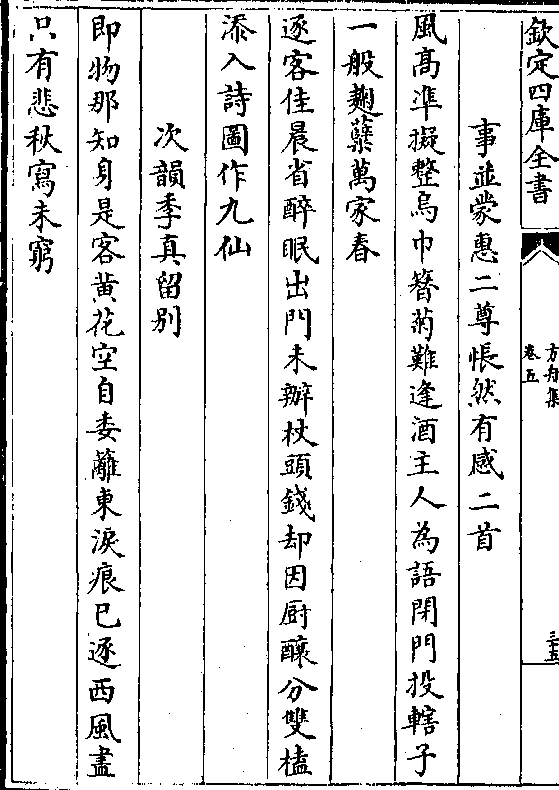 欽定四庫全書
方舟集
卷五
三十五
事並蒙惠二尊悵然有感二首
風髙準擬整烏巾簪菊難逢酒主人為語閉門投轄子
一般麴蘖萬家春
逐客佳晨省醉眠出門未辦杖頭錢却因厨釀分雙榼
添入詩圖作九仙
次韻季真留别
即物那知身是客黄花空自委籬東淚痕已逐西風盡
只有悲秋寫未窮